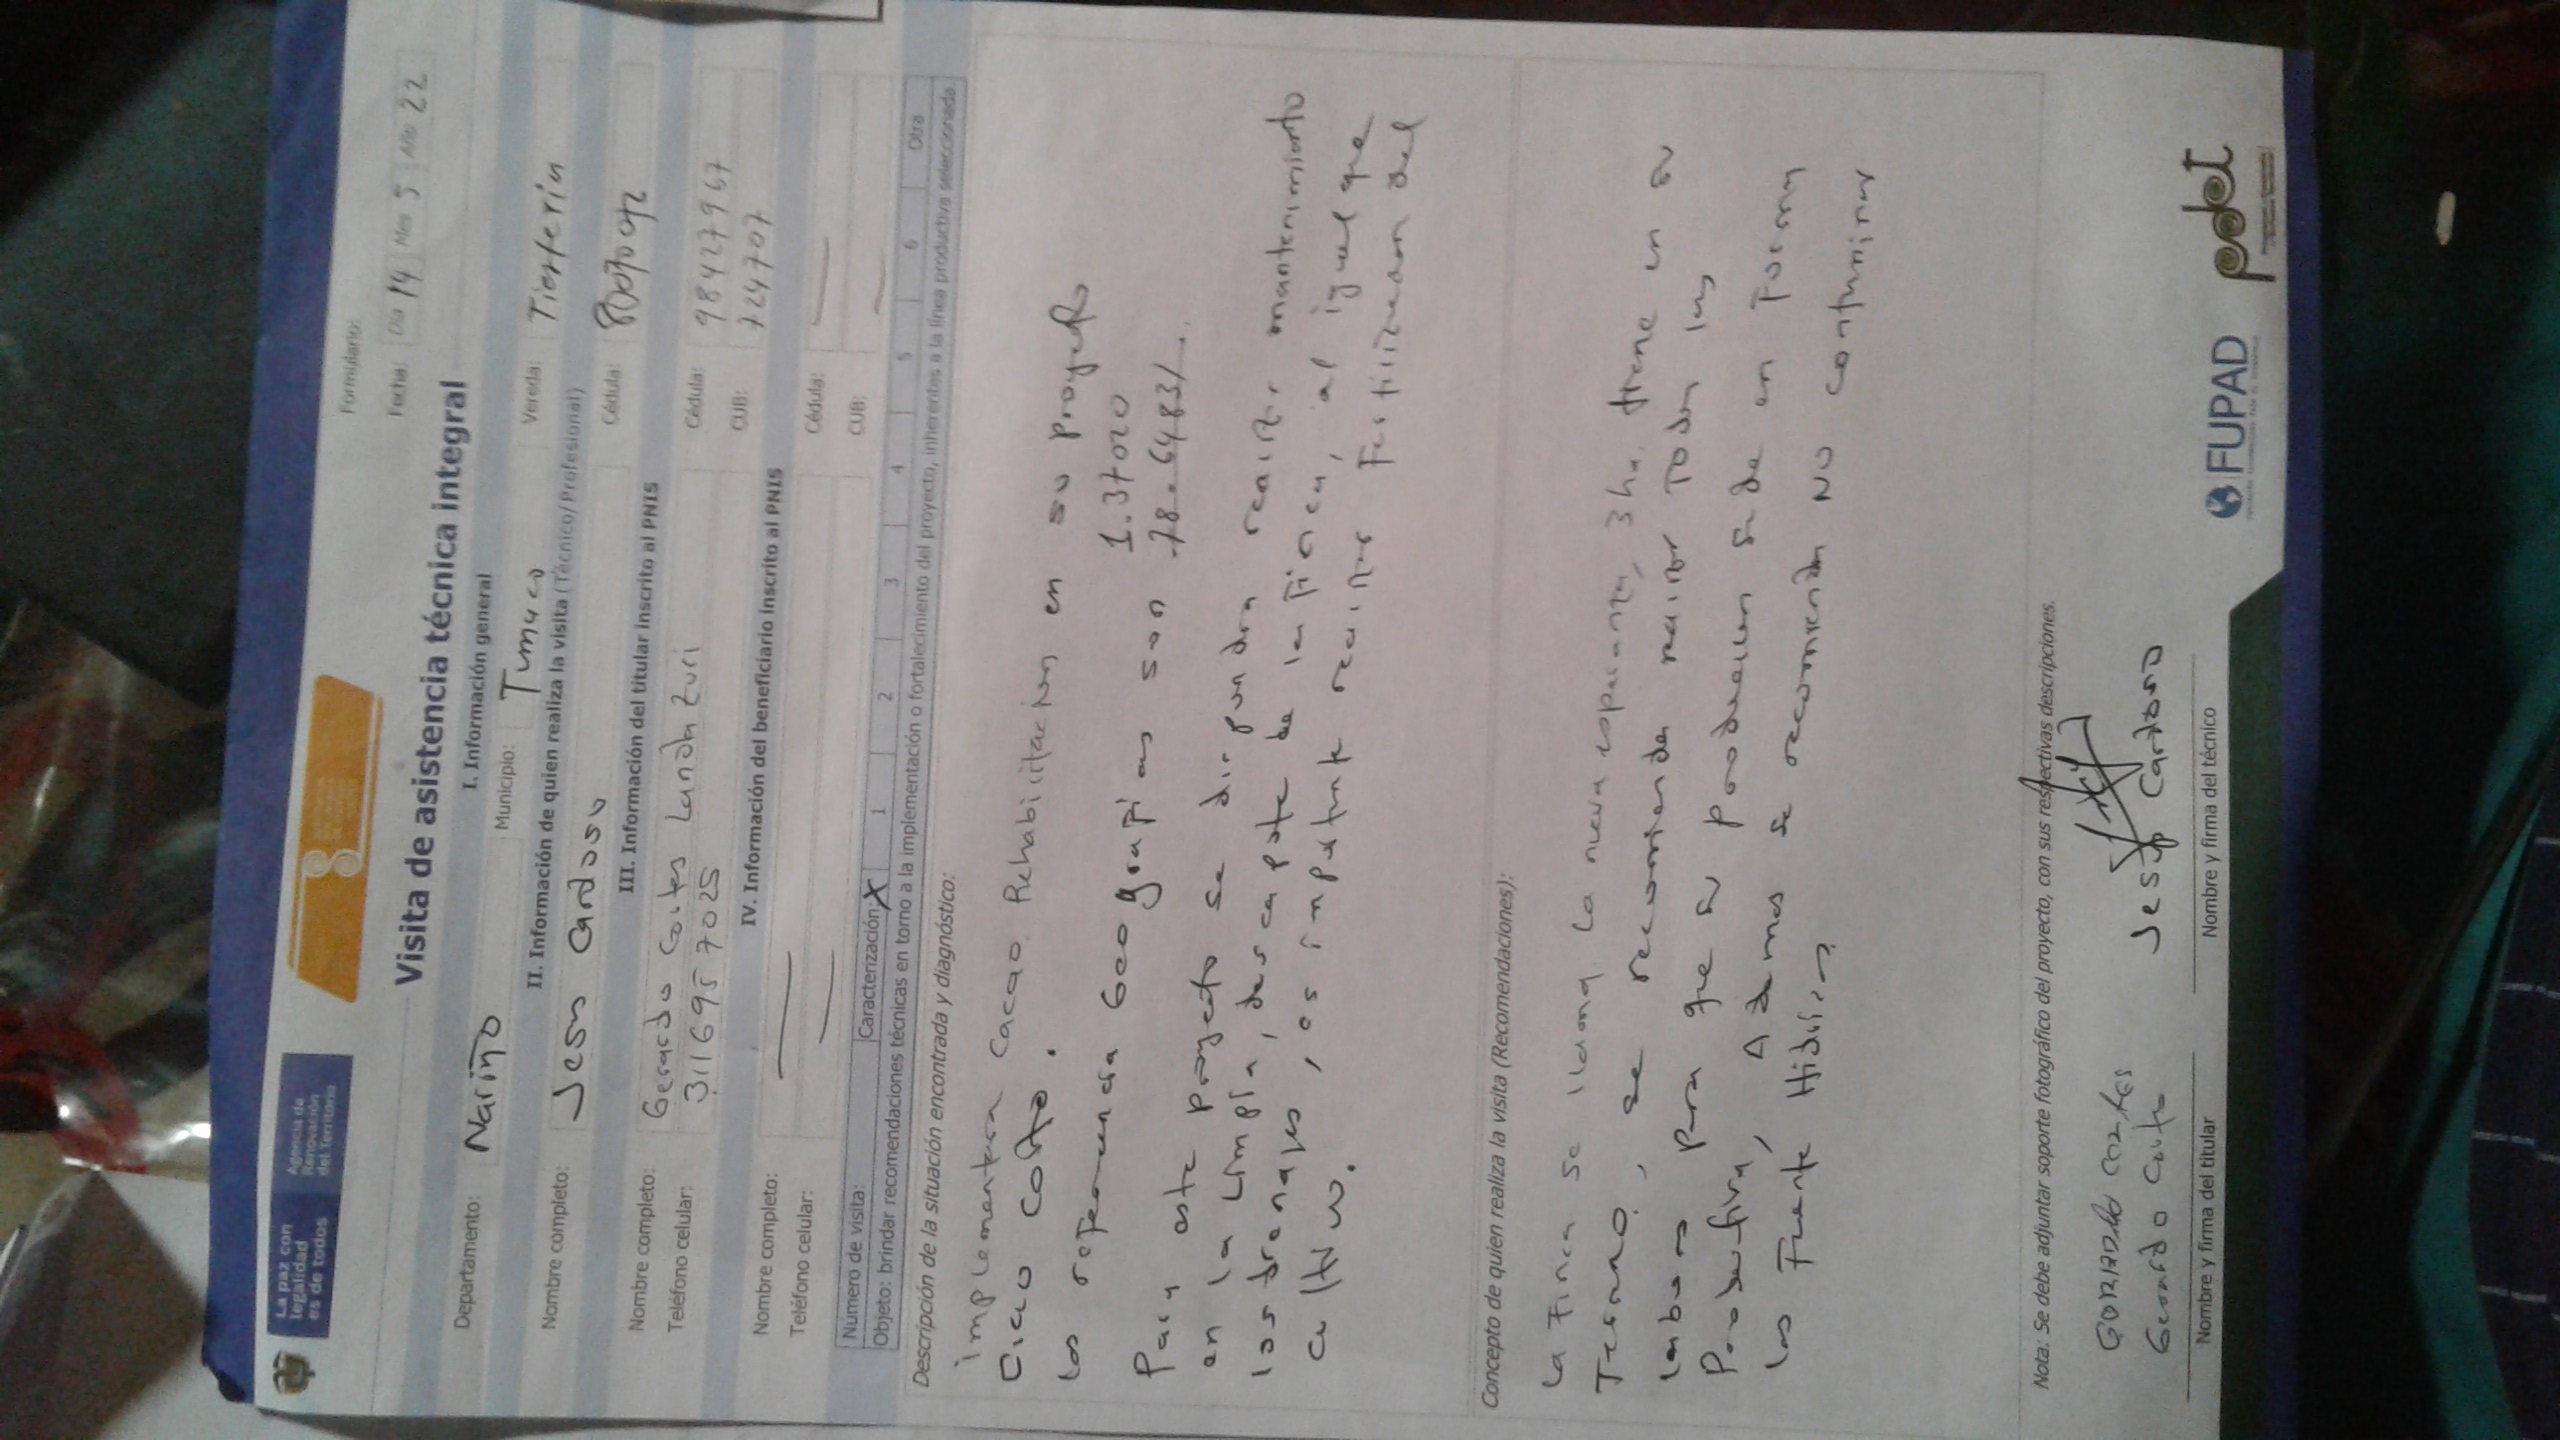 La paz con
legalidad
es de todos
Agencia de
Renovación
del Territorio
Formulario:
Fecha: Día 14 Mes 5 Año 22
Visita de asistencia técnica integral
I. Información general
Departamento: Nariño Municipio: Tumaco Vereda:
II. Información de quien realiza la visita (Técnico/Profesional)
Nombre completo: Jesus Cardoso Cédula:
III. Información del titular inscrito al PNIS
Nombre completo: Gerardo Cortes Landazuri Cédula: 98427967
Teléfono celular: 3116957025 CUB: 724707
IV. Información del beneficiario inscrito al PNIS
Nombre completo: Cédula:
Teléfono celular: CUB:
Número de visita: Caracterización: X 1 2 3 4 5 6 Otra
Objeto: brindar recomendaciones técnicas en torno a la implementación o fortalecimiento del proyecto, inherentes a la línea productiva seleccionada.
Descripción de la situación encontrada y diagnóstico:
implementara cacao. Rehabilitacion en su proyecto
Ciclo corto.
las referencia Geografias son 1.37020
78.64831.
Para este proyecto se
en la Limpia, descapote de la Finca, realizar mantenimiento
los drenajes, es importante realizar Fertilizacion del al igual que
cultivo.
Concepto de quien realiza la visita (Recomendaciones):
La Finca se llama. La nueva esperanza, 3 ha. tiene en su
Terreno, se recomienda realizar Todas las
labores para que su produccion se de en Forma
Productiva, Ademas se recomienda NO contaminar
las Fuente Hidricas
Nota: Se debe adjuntar soporte fotográfico del proyecto, con sus respectivas descripciones.
Gerardo Cortes
Jesus Cardoso
Nombre y firma del titular Nombre y firma del técnico
FUPAD
pdet